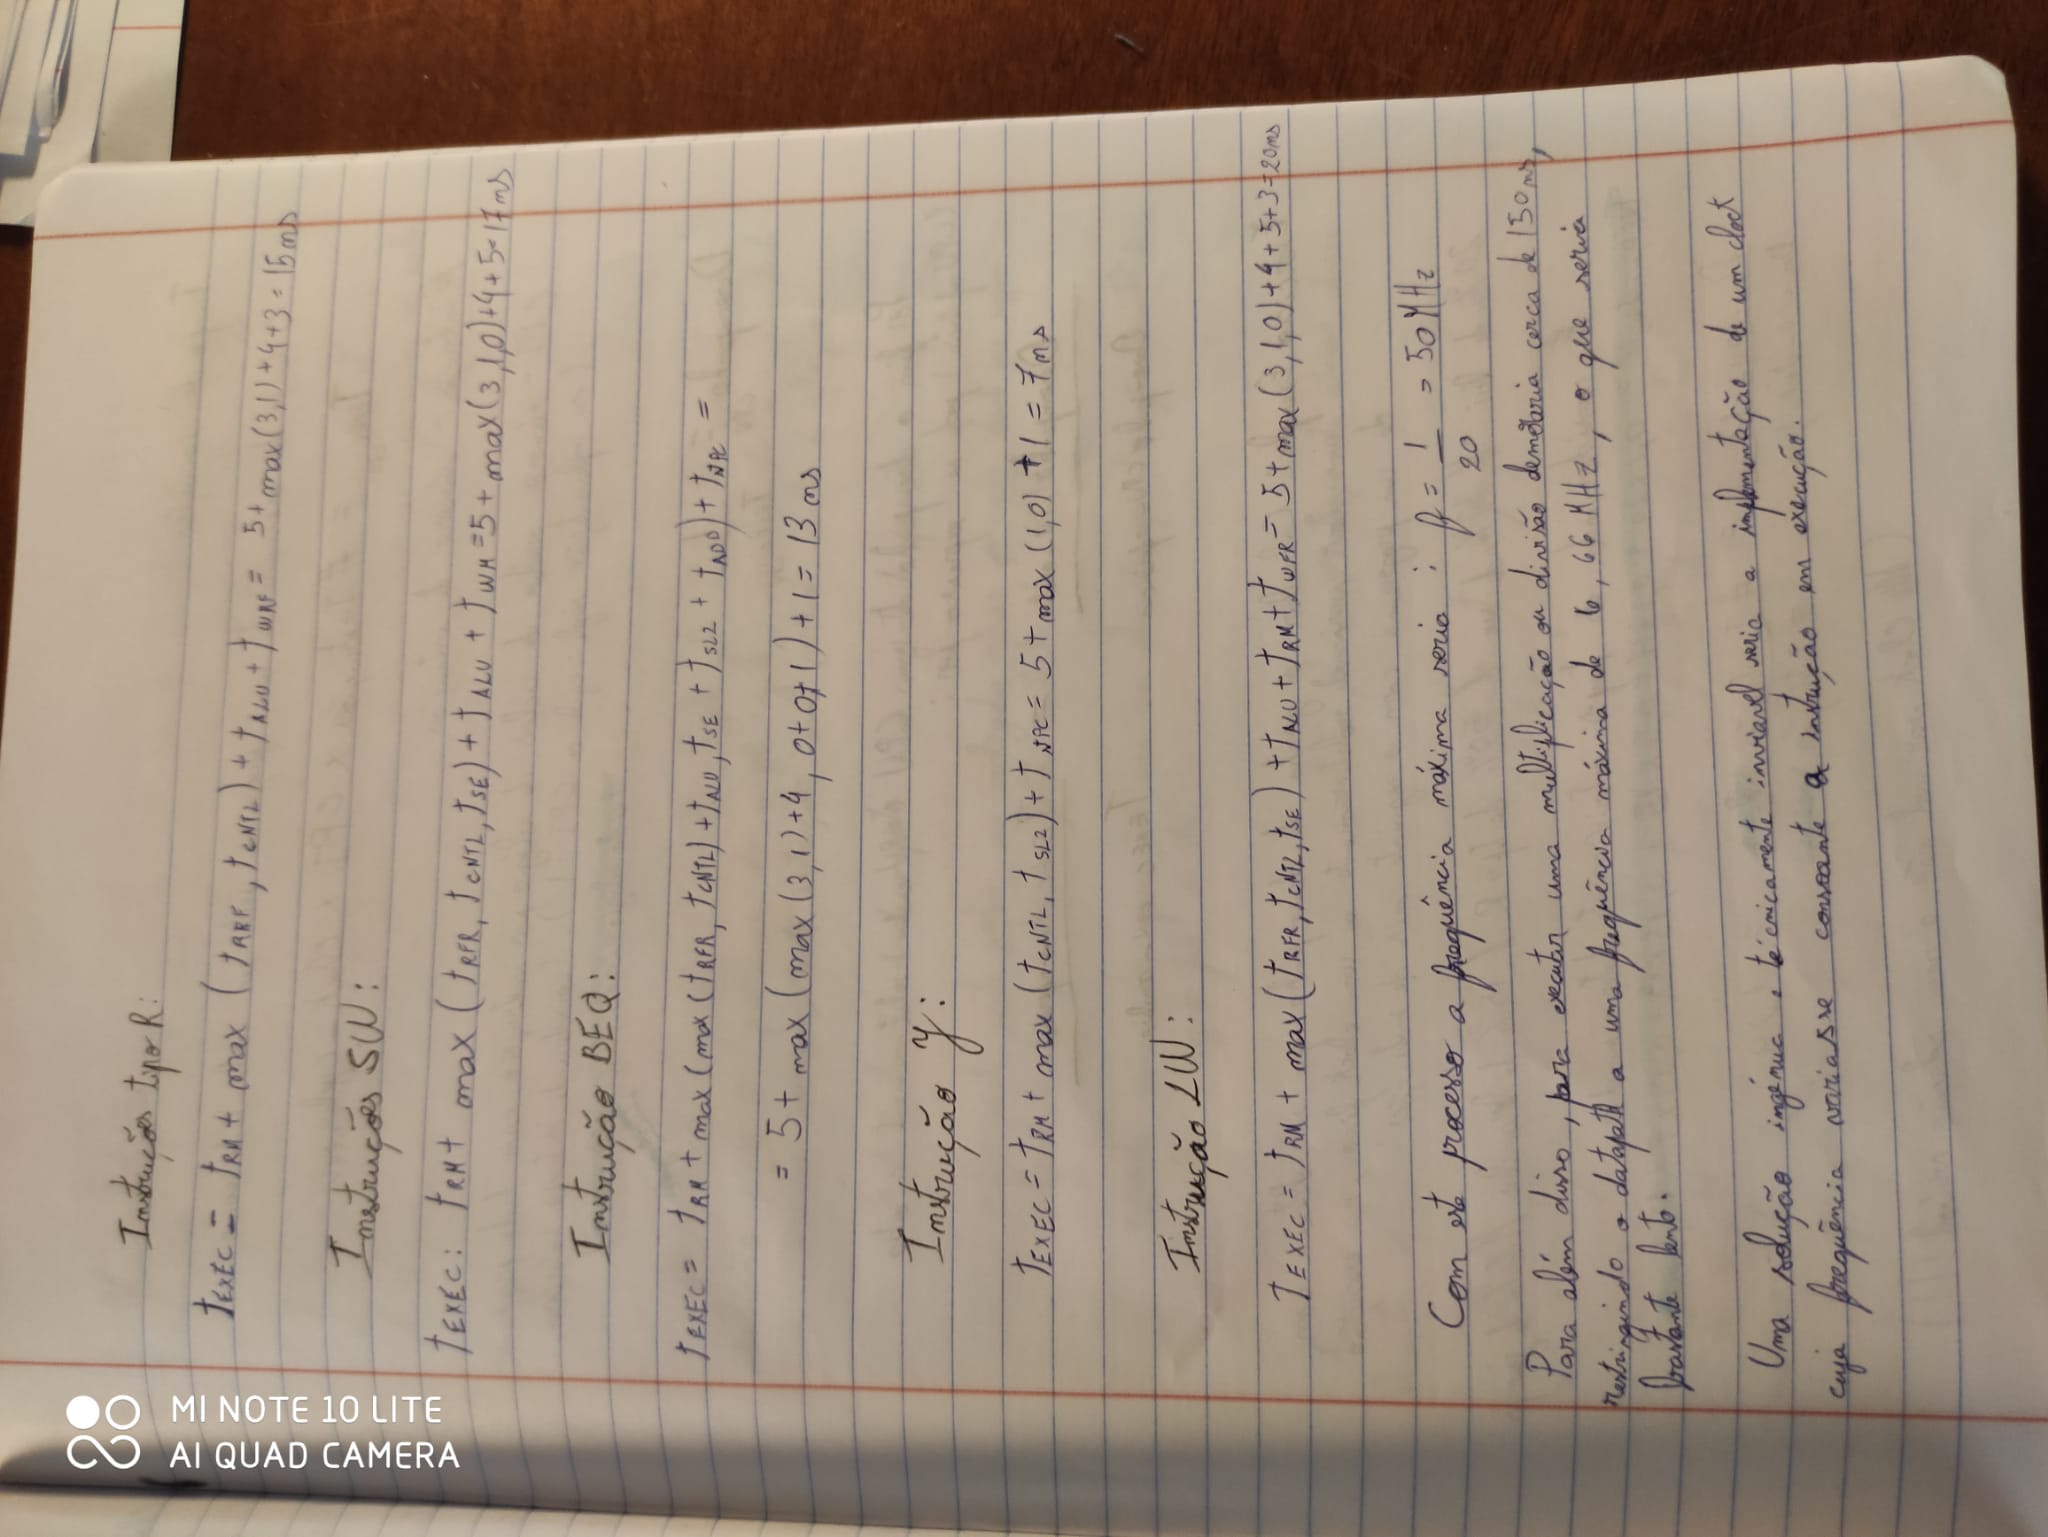 MI NOTE 10 LITE
AI QUAD CAMERA
Instruções tipo R:
tEXEC = tRM + max (tRRF, tCNTL) + tALU + tWRF = 5+ max(3,1)+4+3 = 15ns
Instruções SW:
tEXEC: tRM + max (tRFR, tCNTL, tSE) + tALU + tWM = 5 + max(3,1,0)+4+5=17ns
Instrução BEQ:
tEXEC = tRM + max (max (tRFR, tCNTL) + tALU, tSE + tSL2 + tADD) + tNPC =
= 5+ max (max (3,1)+4, 0+0+1) + 1 = 13 ns
Instrução J:
tEXEC = tRM + max (tCNTL, tSL2) + tNPC = 5 + max (1,0) + 1 = 7ns
Instrução LW:
tEXEC = tRM + max (tRFR, tCNTL, tSE) + tALU + tRM + tWFR = 5+max (3,1,0)+4+5+3=20ns
Com este processo a frequência máxima seria : f = 1/20 = 50MHz
Para além disso, para executar uma multiplicação ou divisão demoraria cerca de 150 ns,
restringindo o datapath a uma frequência máxima de 6,66 MHz, o que seria
bastante lento.
Uma solução ingénua e técnicamente inviavel seria a implementação de um clock
cuja frequência variasse consoante a instrução em execução.